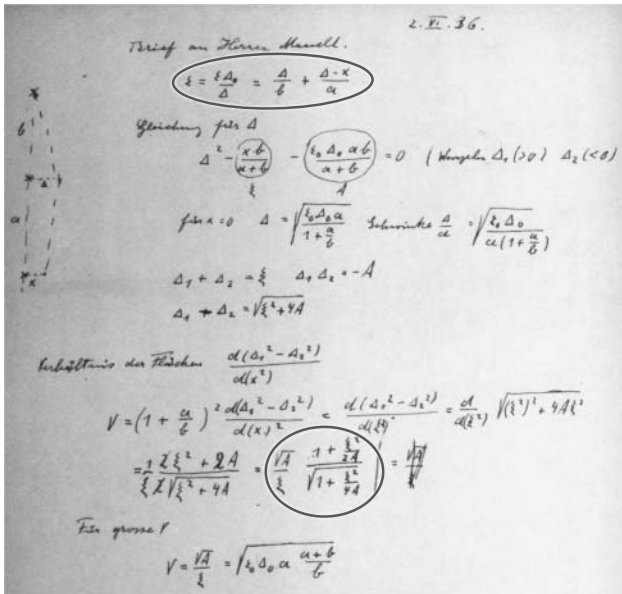 2. VI. 36.
Brief an Herrn Mandl.
ε = ε Δ₀ / Δ = Δ / b + (Δ - x) / a
Gleichung für Δ
Δ² - (x b) / (a + b) - (ε₀ Δ₀ a b) / (a + b) = 0 (Wurzeln Δ₁ (>0) Δ₂ (<0)
ξ A
b
Δ
a
x
für x = 0 Δ = √(ε₀ Δ₀ a / (1 + a/b)) Δ/a = √(ε₀ Δ₀ / (a (1 + a/b)))
Δ₁ + Δ₂ = ξ Δ₁ Δ₂ = -A
Δ₁ - Δ₂ = √(ξ² + 4A)
Verhältnis der Flächen d(Δ₁² - Δ₂²) / d(x²)
V = (1 + a/b)² d(Δ₁² - Δ₂²) / d(x)² = d(Δ₁² - Δ₂²) / d(ξ)² = d / d(ξ²) √((ξ²)² + 4Aξ²)
= 1/ξ (2ξ² + 2A) / (2√(ξ² + 4A)) = √A / ξ (1 + ξ²/2A) / √(1 + ξ²/4A) =
Für grosse V
V = √A / ξ = √(ε₀ Δ₀ a (a + b) / b)